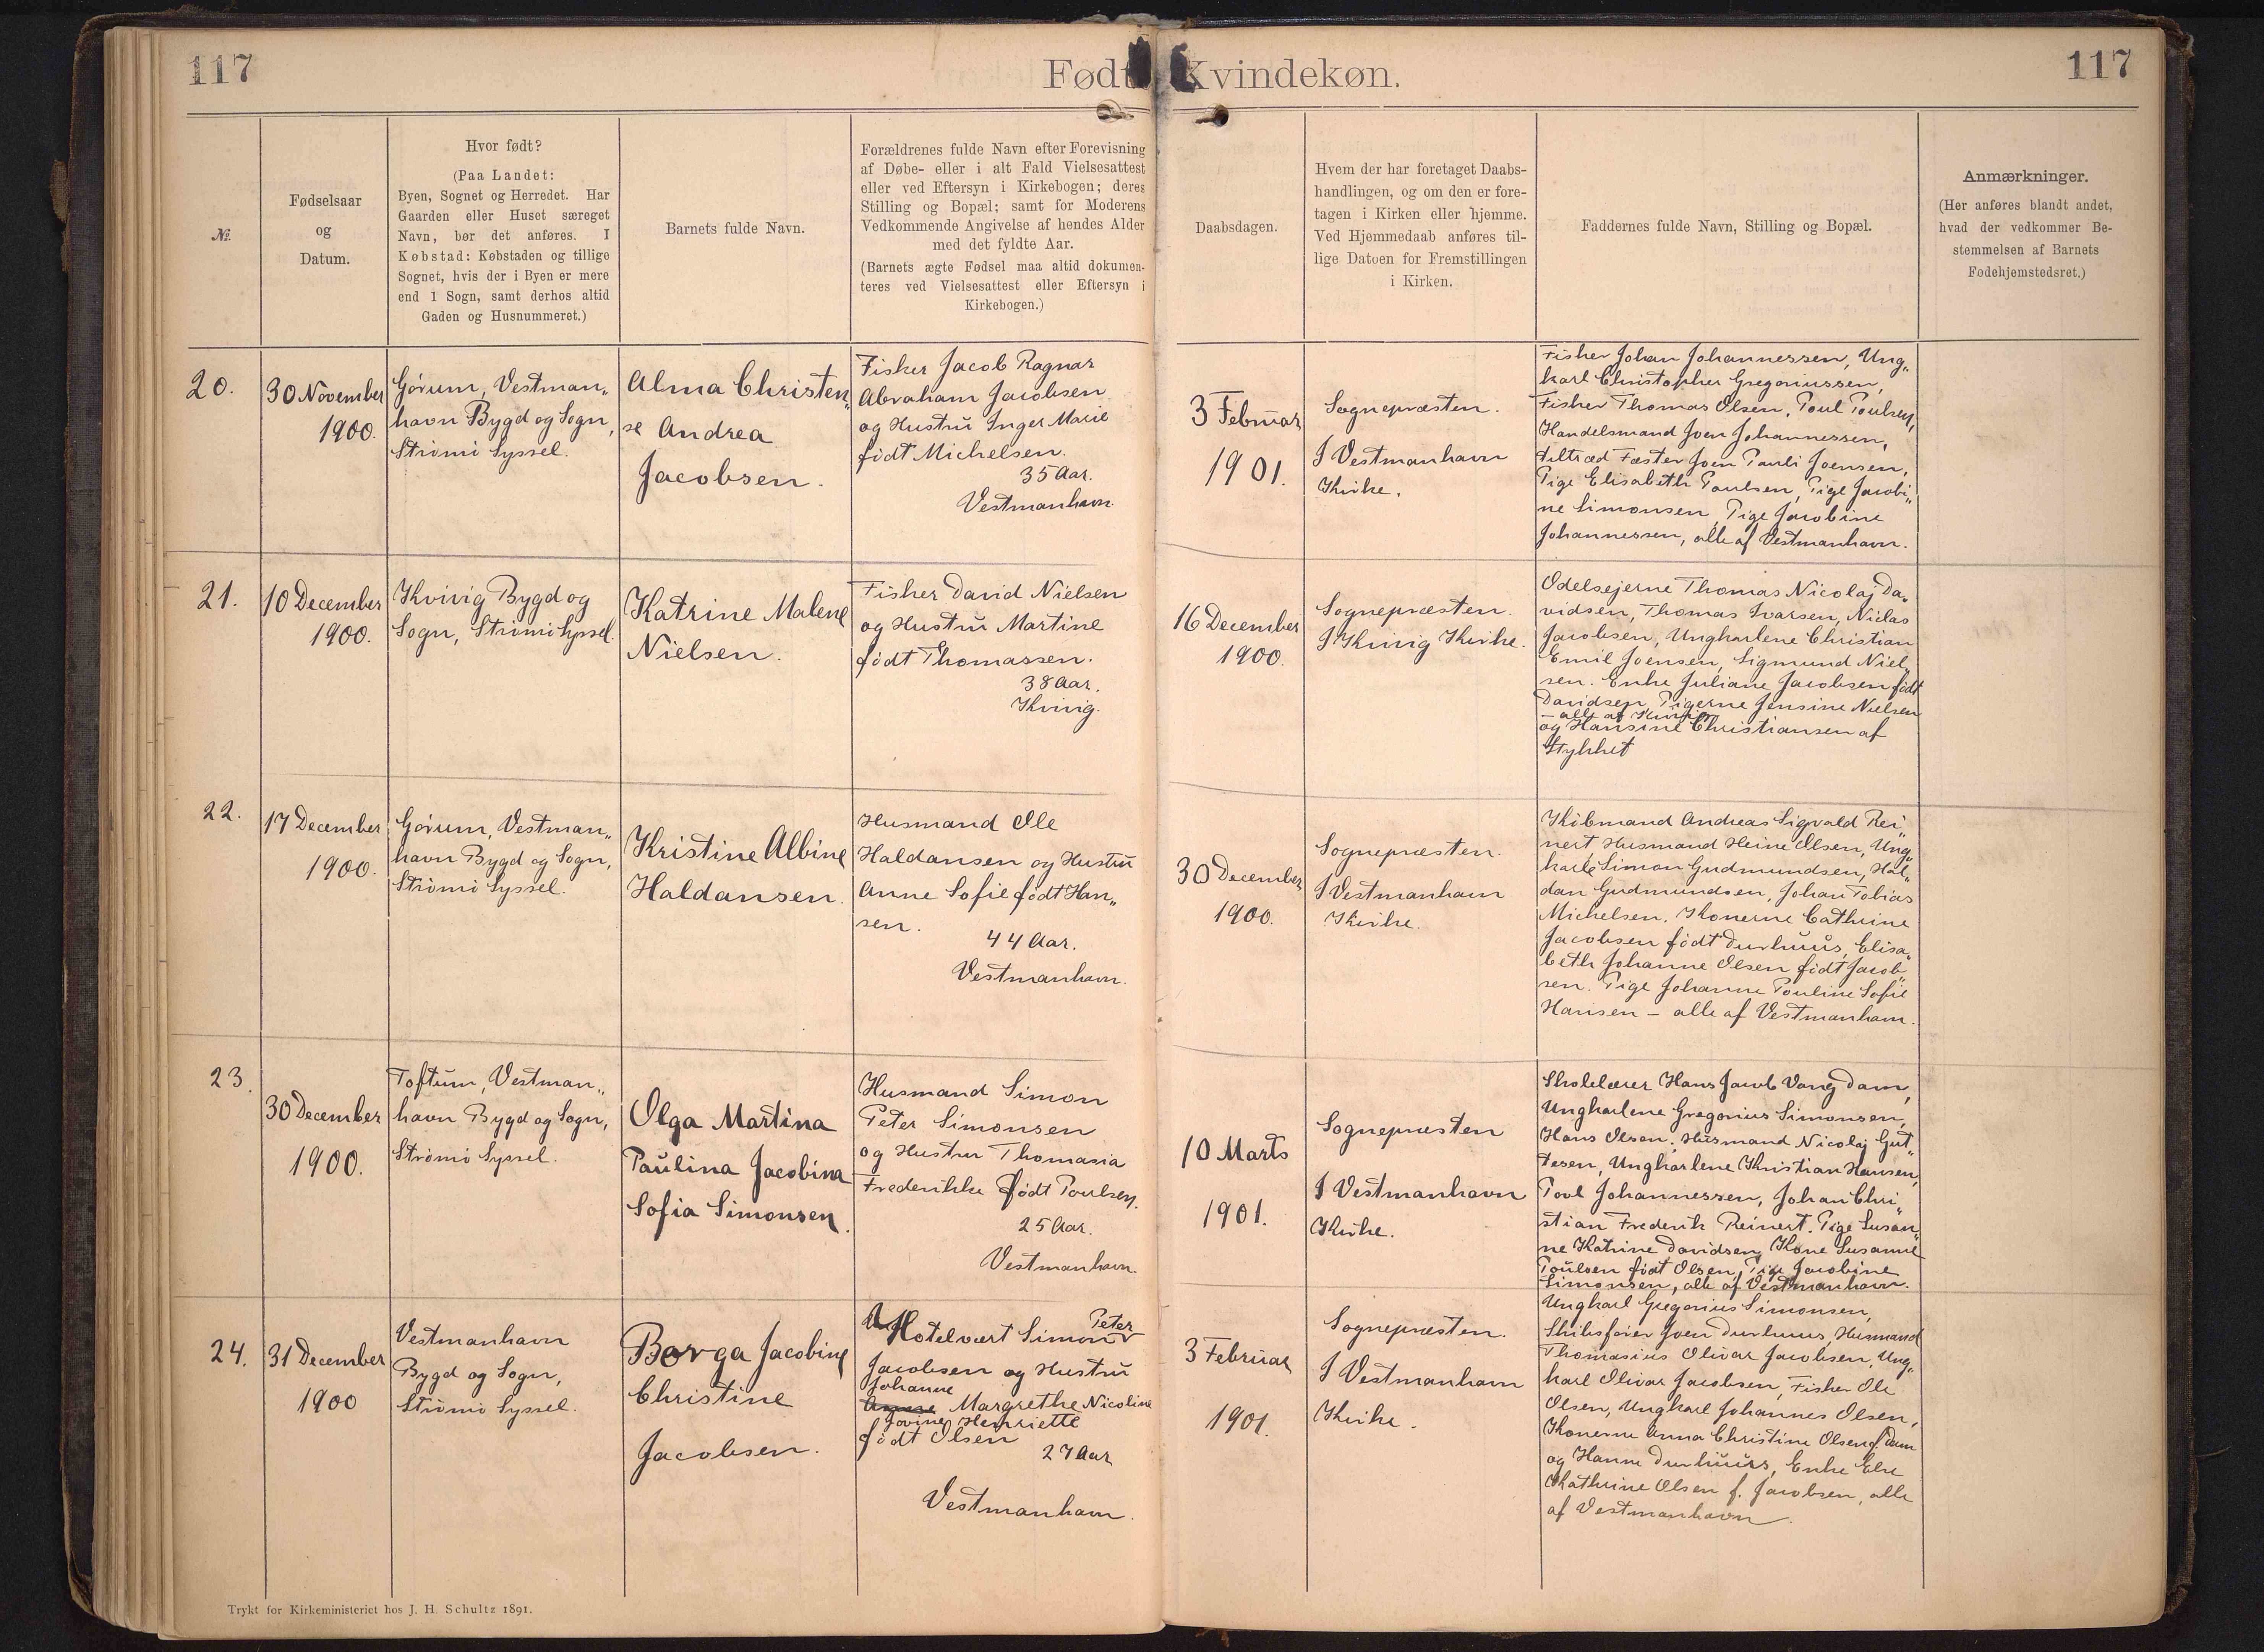 117
Født Kvindekøn.
117
№.
Fødselsaar
og
Datum.
Hvor født?
(Paa Landet:
Byen, Sognet og Herredet. Har
Gaarden eller Huset særeget
Navn, bør det anføres. I
Købstad: Købstaden og tillige
Sognet, hvis der i Byen er mere
end 1 Sogn, samt derhos altid
Gaden og Husnummeret.)
Barnets fulde Navn.
Forældrenes fulde Navn efter Forevisning
af Døbe- eller i alt Fald Vielsesattest
eller ved Eftersyn i Kirkebogen; deres
Stilling og Bopæl; samt for Moderens
Vedkommende Angivelse af hendes Alder
med det fyldte Aar.
(Barnets ægte Fødsel maa altid dokumen-
teres ved Vielsesattest eller Eftersyn i
Kirkebogen.)
Daabsdagen.
Hvem der har foretaget Daabs-
handlingen, og om den er fore-
tagen i Kirken eller hjemme.
Ved Hjemmedaab anføres til-
lige Datoen for Fremstillingen
i Kirken.
Faddernes fulde Navn, Stilling og Bopæl.
Anmærkninger.
(Her anføres blandt andet,
hvad der vedkommer Be-
stemmelsen af Barnets
Fødehjemstedsret.)
20.
30 November
1900.
Gørum, Vestman„
havn Bygd og Sogn,
Strømø Syssel.
Alma Christen„
se Andrea
Jacobsen.
Fisker Jacob Ragnar
Abraham Jacobsen
og Hustru Inger Marie
født Michelsen.
35 Aar.
Vestmanhavn.
3 Februar
1901.
Sognepræsten.
I Vestmanhavn
Kirke.
Fisker Johan Johannessen, Ung„
karl Christopher Gregoriussen,
Fisker Thomas Olsen, Poul Poulsen,
Handelsmand Joen Johannessen,
Fæster Joen Pauli Joensen,
Pige Elisabeth Poulsen, Pige Jacobi„
ne Simonsen, Pige Jacobine
Johannessen, alle af Vestmanhavn.
21.
10 December
1900.
Kvivig Bygd og
Sogn, Strømø Syssel.
Katrine Malene
Nielsen.
Fisker David Nielsen
og Hustru Martine
født Thomassen.
38 Aar.
Kvivig.
16 December
1900.
Sognepræsten.
I Kvivig Kirke.
Odelsejerne Thomas Nicolaj Da„
vidsen, Thomas Ivarsen, Niclas
Jacobsen, Ungkarlene Christian
Emil Joensen, Sigmund Niel„
sen. Enke Juliane Jacobsen født
Davidsen, Pigerne Jensine Nielsen
– alle af Kvivig
og Hansine Christiansen af
Stykket
22.
17 December
1900.
Gørum, Vestman„
havn Bygd og Sogn,
Strømø Syssel.
Kristine Albine
Haldansen.
Husmand Ole
Haldansen og Hustru
Anne Sofie født Han„
sen.
44 Aar.
Vestmanhavn.
30 December
1900.
Sognepræsten.
I Vestmanhavn
Kirke.
Købmand Andreas Sigvald Rei„
nert Husmand Heine Olsen, Ung„
karle Simon Gudmundsen, Hal„
dan Gudmundsen, Johan Tobias
Michelsen. Konerne Cathrine
Jacobsen født Durhuus, Elisa„
beth Johanne Olsen født Jacob„
sen. Pige Johanne Pouline Sofie
Hansen – alle af Vestmanhavn.
23.
30 December
1900.
Toftum, Vestman„
havn Bygd og Sogn,
Strømø Syssel.
Olga Martina
Paulina Jacobina
Sofia Simonsen.
Husmand Simon
Peter Simonsen
og Hustru Thomasia
Frederikke født Poulsen.
25 Aar.
Vestmanhavn.
10 Marts
1901.
Sognepræsten
I Vestmanhavn
Kirke.
Skolelærer Hans Jacob Vang Dam,
Ungkarlene Gregorius Simonsen,
Hans Olsen, Husmand Nicolaj Gut„
tesen, Ungkarlene Kristian Hansen,
Povl Johannessen, Johan Chri„
stian Frederik Reinert. Pige Susan„
ne Katrine Davidsen, Kone Susanne
Poulsen født Olsen, Pige Jacobine
Simonsen, alle af Vestmanhavn.
24.
31 December
1900
Vestmanhavn
Bygd og Sogn,
Strømø Syssel.
Borga Jacobine
Christine
Jacobsen.
Peter
Hotelvært Simon
Jacobsen og Hustru
Johanne
Margrethe Nicoline
Jovine Henriette
født Olsen
27 Aar
Vestmanhavn.
3 Februar
1901.
Sognepræsten.
I Vestmanhavn
Kirke.
Ungkarl Gregorius Simonsen,
Skibsfører Joen Durhuus, Husmand
Thomasius Olivar Jacobsen, Ung„
karl Olivar Jacobsen, Fisker Ole
Olsen, Ungkarl Johannes Olsen,
Konerne Anna Christine Olsen f. Dam
og Hanne Durhuus, Enke Else
Kathrine Olsen f. Jacobsen, alle
af Vestmanhavn.
Trykt for Kirkeministeriet hos J. H. Schultz 1891.